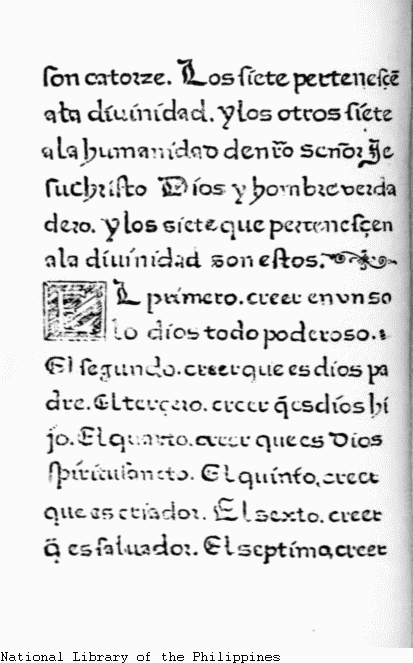 son catorze. Los siete pertenesçẽ
a la diuinidad. y los otros siete
a la humanidad de nr̃o señor Je
suchristo Dios y hombre verda
dero. y los siete que pertenesçen
a la diuinidad son estos.
EL primero. creer en vn so
lo dios todo poderoso.
El segundo. creer que es dios pa
dre. El terçero. creer q̃ es dios hi
jo. El quarto. creer que es Dios
spiritusancto. El quinto, creer
que es criador. El sexto. creer
q̃ es saluador. El septimo, creer
National Library of the Philippines